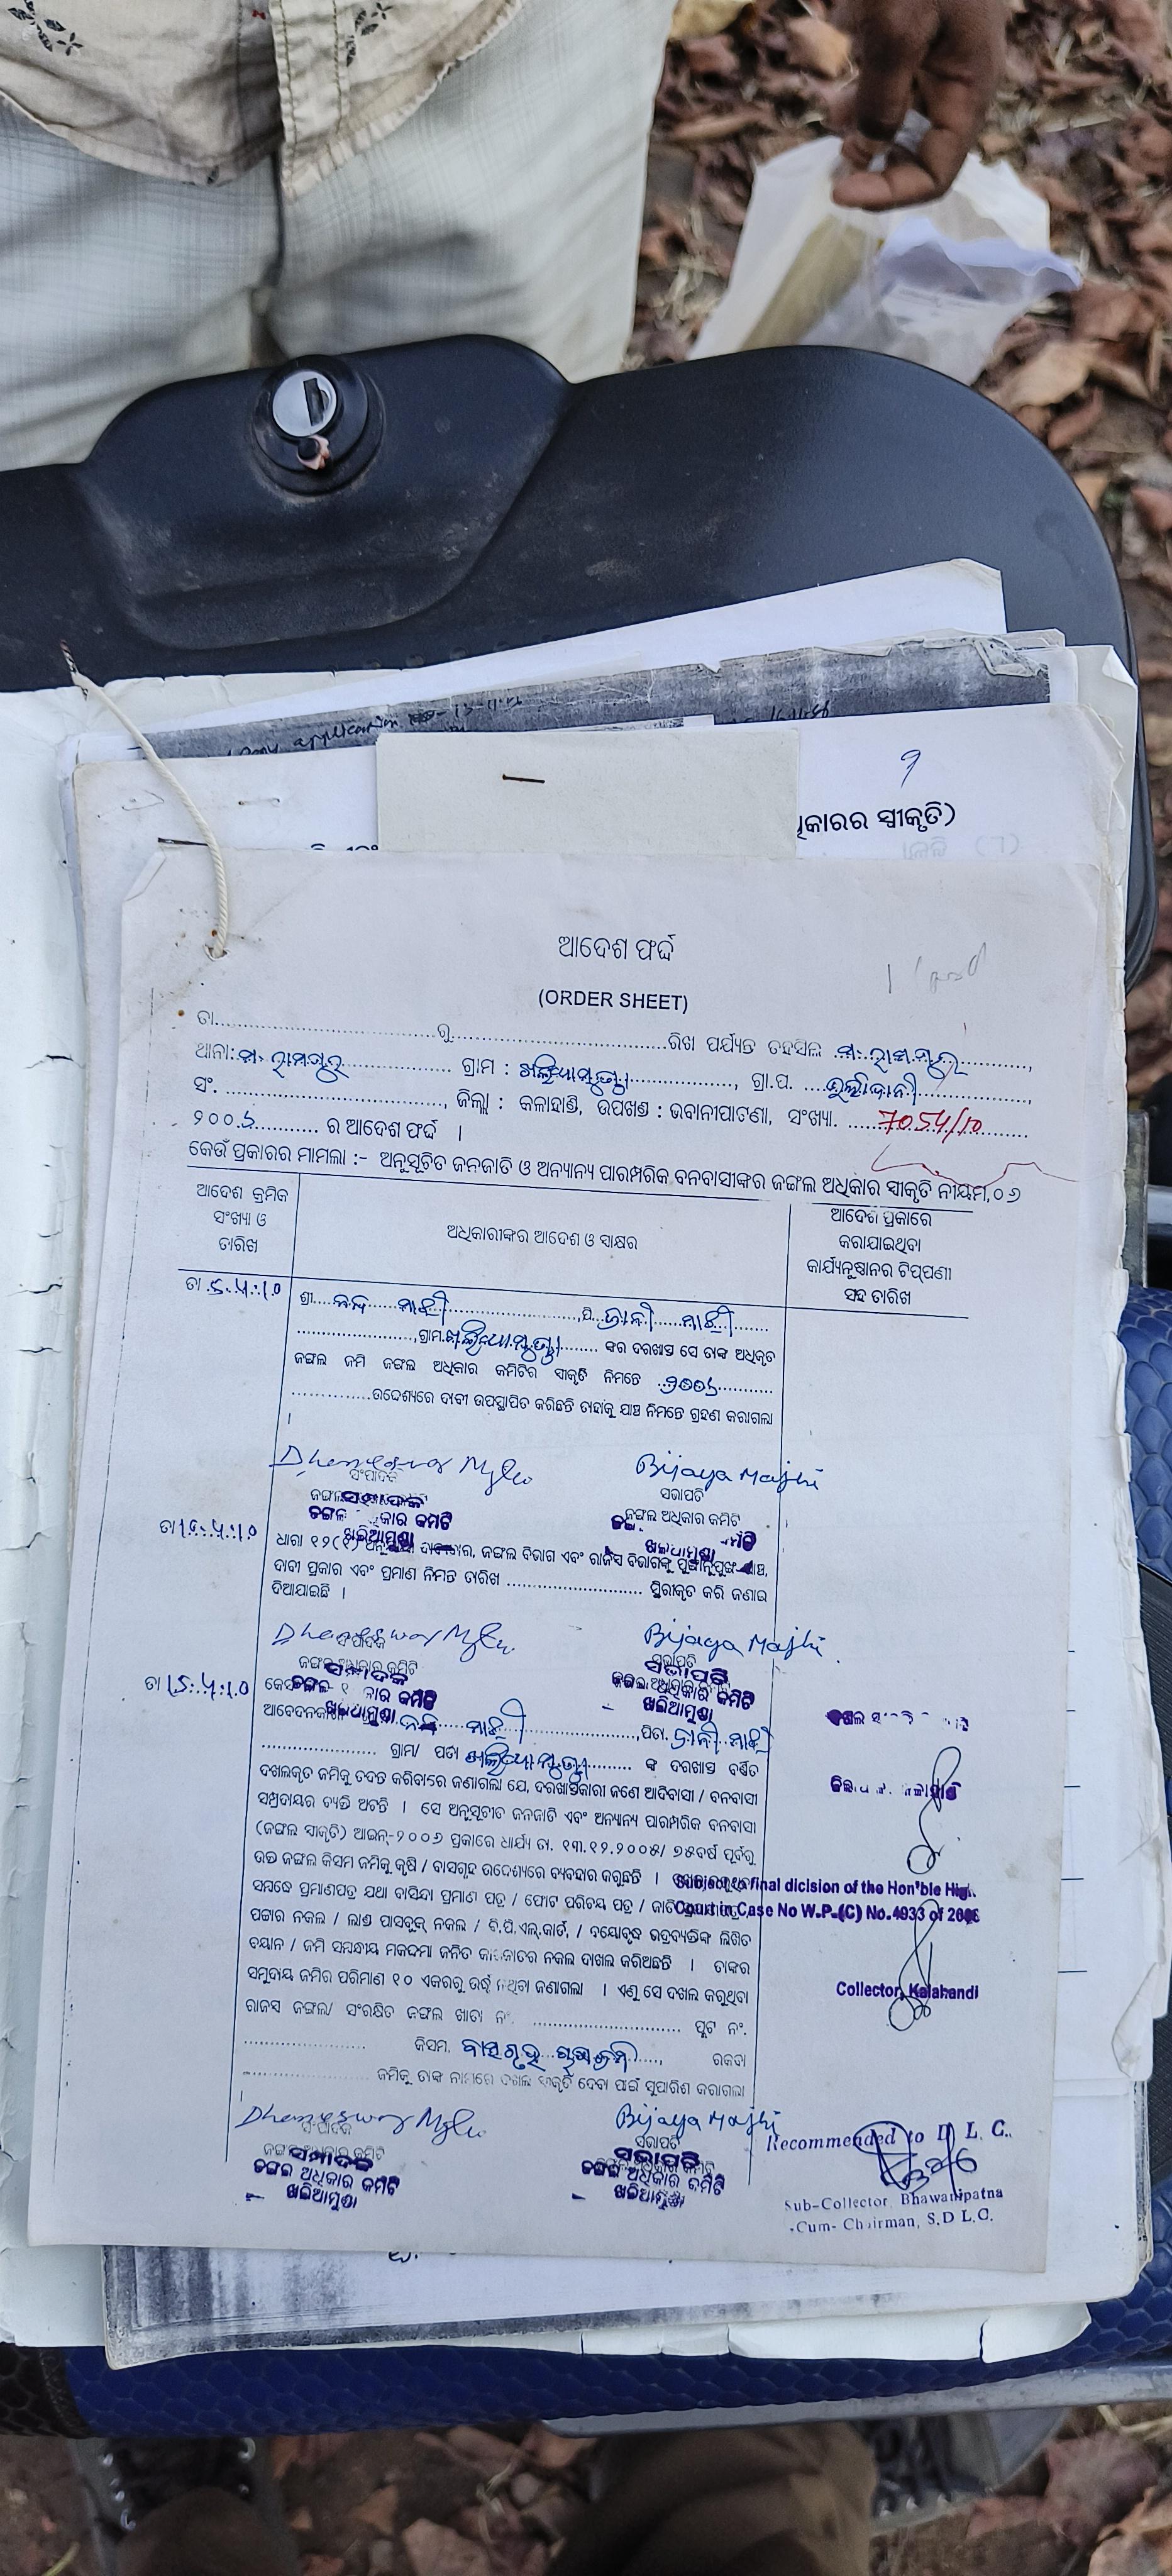 9
ଧିକାରର ସ୍ୱୀକୃତି)
ଆଦେଶ ଫର୍ଦ୍ଦ
(ORDER SHEET)
ତା..............................ରୁ..............................ରିଖ ପର୍ଯ୍ୟନ୍ତ ତହସିଲ ମ. ରାମପୁର,
ଥାନା: ମ. ରାମପୁର ଗ୍ରାମ : ଖଲିଆମୁଣ୍ଡା, ଗ୍ରା.ପ.
ସଂ. .............................., ଜିଲ୍ଲା : କଳାହାଣ୍ଡି, ଉପଖଣ୍ଡ : ଭବାନୀପାଟଣା, ସଂଖ୍ୟା. 7054/10
୨୦୦ ର ଆଦେଶ ଫର୍ଦ୍ଦ ।
କେଉଁ ପ୍ରକାରର ମାମଲା :- ଅନୁସୂଚିତ ଜନଜାତି ଓ ଅନ୍ୟାନ୍ୟ ପାରମ୍ପରିକ ବନବାସୀଙ୍କର ଜଙ୍ଗଲ ଅଧିକାର ସ୍ୱୀକୃତି ନୀୟମ,୦୬
ଆଦେଶ କ୍ରମିକ
ସଂଖ୍ୟା ଓ
ତାରିଖ
ଅଧିକାରୀଙ୍କର ଆଦେଶ ଓ ସାକ୍ଷର
ଆଦେଶ ପ୍ରକାରେ
କରାଯାଇଥିବା
କାର୍ଯ୍ୟନୁଷ୍ଠାନର ଟିପ୍ପଣୀ
ସହ ତାରିଖ
ତା 5.4.10
ଶ୍ରୀ ମାଝୀ, ପି ମାଝୀ
,ଗ୍ରାମ ଖଲିଆମୁଣ୍ଡା ଙ୍କର ଦରଖାସ୍ତ ସେ ତାଙ୍କ ଅଧିକୃତ
ଜଙ୍ଗଲ ଜମି ଜଙ୍ଗଲ ଅଧିକାର କମିଟିର ସ୍ୱୀକୃତି ନିମନ୍ତେ
ଉଦ୍ଦେଶ୍ୟରେ ଦାବୀ ଉପସ୍ଥାପିତ କରିଛନ୍ତି ତାହାକୁ ଯାଞ୍ଚ ନିମନ୍ତେ ଗ୍ରହଣ କରାଗଲା
।
Dhaneswar Bijaya Majhi
ସଂପାଦକ ସଭାପତି
ଜଙ୍ଗଲ ଅଧିକାର କମିଟି
ଖଲିଆମୁଣ୍ଡା ଖଲିଆମୁଣ୍ଡା
ଧାରା ୧୨(୧) ଜଙ୍ଗଲ ବିଭାଗ ଏବଂ ରାଜସ୍ୱ ବିଭାଗଙ୍କୁ ପୁଙ୍ଖାନୁପୁଙ୍ଖ ଯାଞ୍ଚ,
ଦାବୀ ପ୍ରକାର ଏବଂ ପ୍ରମାଣ ନିମନ୍ତେ ତାରିଖ .............................. ସ୍ଥିରୀକୃତ କରି ଜଣାଇ
ଦିଆଯାଇଛି ।
Dhaneswar Bijaya Majhi
ସଂପାଦକ ସଭାପତି
ଜଙ୍ଗଲ ଅଧିକାର କମିଟି ଜଙ୍ଗଲ ଅଧିକାର କମିଟି
ଖଲିଆମୁଣ୍ଡା ଖଲିଆମୁଣ୍ଡା
ତା 15.4.10
ଆବେଦନକାରୀ ମାଝୀ ,ପିତା. ମାଝୀ
ଗ୍ରାମ/ ପଡା ଖଲିଆମୁଣ୍ଡା ଙ୍କ ଦରଖାସ୍ତ ବର୍ଣ୍ଣିତ
ଦଖଲକୃତ ଜମିକୁ ତଦନ୍ତ କରିବାରେ ଜଣାଗଲା ଯେ, ଦରଖାସ୍ତକାରୀ ଜଣେ ଆଦିବାସୀ / ବନବାସୀ
ସମ୍ପ୍ରଦାୟର ବ୍ୟକ୍ତି ଅଟନ୍ତି । ସେ ଅନୁସୂଚୀତ ଜନଜାତି ଏବଂ ଅନ୍ୟାନ୍ୟ ପାରମ୍ପରିକ ବନବାସୀ
(ଜଙ୍ଗଲ ସ୍ୱୀକୃତି) ଆଇନ୍-୨୦୦୬ ପ୍ରକାରେ ଧାର୍ଯ୍ୟ ତା. ୧୩.୧୨.୨୦୦୫/ ୭୫ବର୍ଷ ପୂର୍ବରୁ
ଉକ୍ତ ଜଙ୍ଗଲ କିସମ ଜମିକୁ କୃଷି / ବାସଗୃହ ଉଦ୍ଦେଶ୍ୟରେ ବ୍ୟବହାର କରୁଛନ୍ତି ।
ସମ୍ବନ୍ଧେ ପ୍ରମାଣପତ୍ର ଯଥା ବାସିନ୍ଦା ପ୍ରମାଣ ପତ୍ର / ଫୋଟ ପରିଚୟ ପତ୍ର / ଜାତି
ପଟ୍ଟାର ନକଲ / ଲାଣ୍ଡ ପାସବୁକ୍ ନକଲ / ବି.ପି.ଏଲ୍.କାର୍ଡ, / ବୟୋବୃଦ୍ଧ ଭଦ୍ରବ୍ୟକ୍ତିଙ୍କ ଲିଖିତ
ବୟାନ / ଜମି ସମ୍ବନ୍ଧୀୟ ମକଦ୍ଦମା ଜନିତ କାଗଜାତର ନକଲ ଦାଖଲ କରିଅଛନ୍ତି । ତାଙ୍କର
ସମୁଦାୟ ଜମିର ପରିମାଣ ୧୦ ଏକରରୁ ଉର୍ଦ୍ଧ୍ୱ ନଥିବା ଜଣାଗଲା । ଏଣୁ ସେ ଦଖଲ କରୁଥିବା
ରାଜସ୍ୱ ଜଙ୍ଗଲ/ ସଂରକ୍ଷିତ ଜଙ୍ଗଲ ଖାତା ନଂ. .............................. ପ୍ଲଟ ନଂ.
.................... କିସମ. ବାସଗୃହ , ରକବା
.................... ଜମିକୁ ତାଙ୍କ ନାମରେ ଦଖଲ ସ୍ୱୀକୃତି ଦେବା ପାଇଁ ସୁପାରିଶ କରାଗଲା
।
Subject to final dicision of the Hon'ble High
Court in Case No W.P.(C) No.4933 of 2008
Collector, Kalahandi
Dhaneswar Bijaya Majhi
ସଂପାଦକ ସଭାପତି
ଜଙ୍ଗଲ ଅଧିକାର କମିଟି ଜଙ୍ଗଲ ଅଧିକାର କମିଟି
ଖଲିଆମୁଣ୍ଡା ଖଲିଆମୁଣ୍ଡା
Recommended to D. L. C.
Sub-Collector, Bhawanipatna
-Cum- Chairman, S.D.L.C.